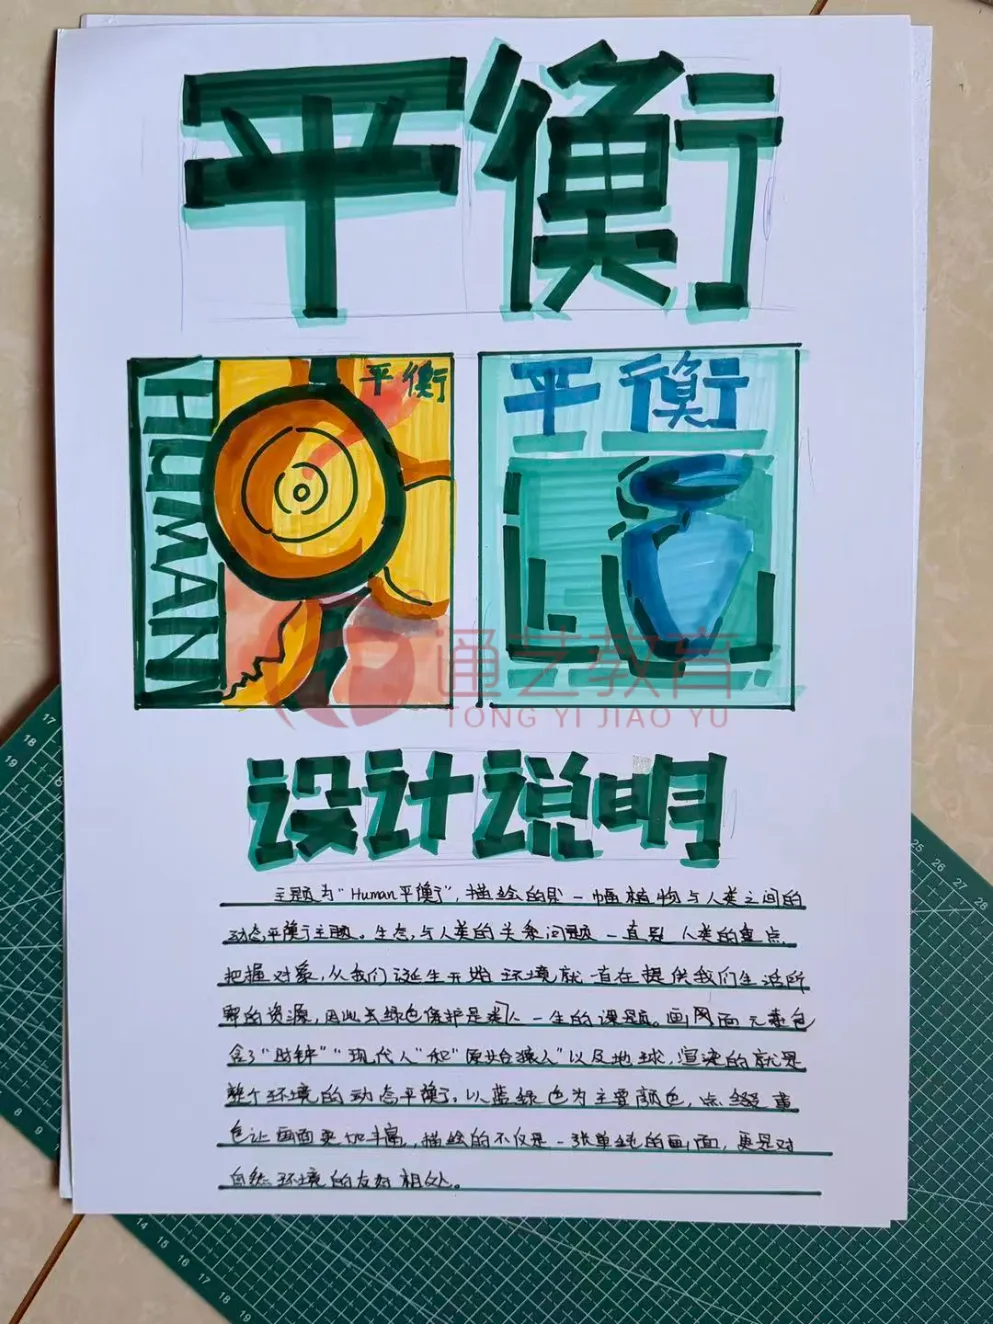 平衡
HUMAN
平衡
平衡
通艺教育
TONG YI JIAO YU
设计说明
主题为“Human平衡”，描绘的是一幅植物与人类之间的
动态平衡主题。生态与人类的关系问题一直是人类的重点
把握对象，从我们诞生开始环境就一直在提供我们生活所
需的资源，因此绿色保护是类人一生的课题。画面元素包
含了“时钟”“现代人”和“原始猿人”以及地球，渲染的就是
整个环境的动态平衡。以蓝绿色为主要颜色，点缀黄
色让画面更加丰富，描绘的不仅是一张单纯的画面，更是对
自然环境的友好相处。
17
18
19
25
26
27
28
8
9
14
15
16
17
18
19